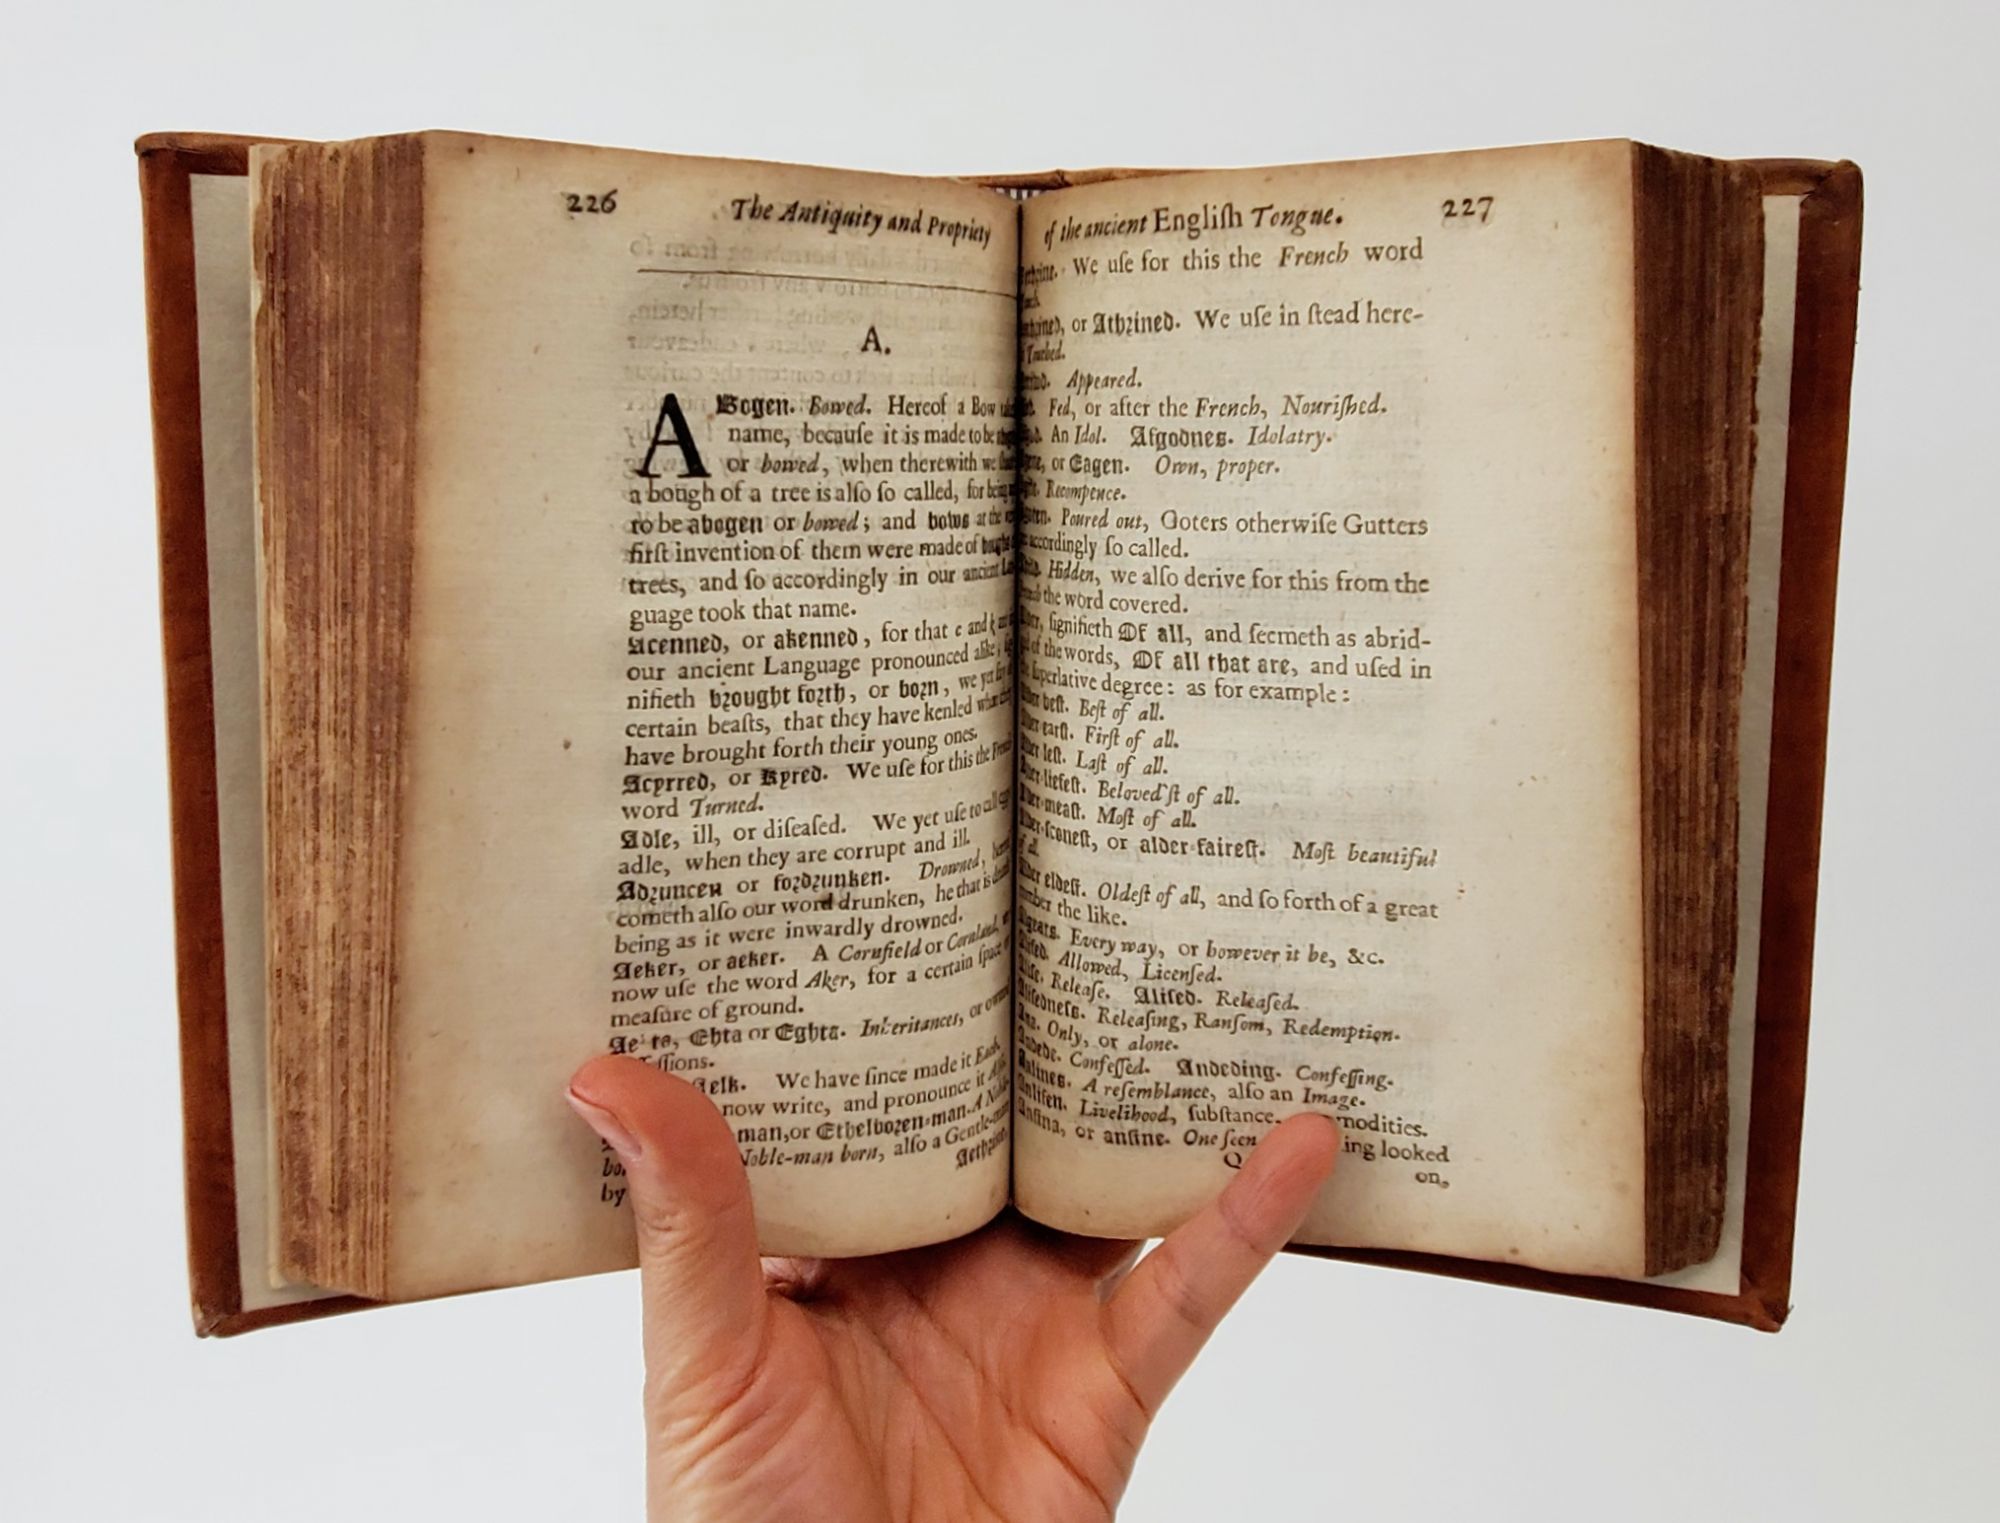 226 The Antiquity and Propriety
A.
ABogen. Bowed. Hereof a Bow
name, becauſe it is made to be
or bowed, when therewith we
a bough of a tree is alſo ſo called, for being
to be abogen or bowed; and bows at the
firſt invention of them were made of boughs
trees, and ſo accordingly in our ancient
guage took that name.
Acenned, or akenned, for that c and k
our ancient Language pronounced alike,
nifieth brought forth, or born, we yet ſay
certain beaſts, that they have kenled when they
have brought forth their young ones.
Acyrred, or Kyred. We uſe for this the French
word Turned.
Adle, ill, or diſeaſed. We yet uſe to call
adle, when they are corrupt and ill.
Adruncen or fordrunken. Drowned,
cometh alſo our word drunken, he that is
being as it were inwardly drowned.
Aeker, or aeker. A Cornfield or Cornland,
now uſe the word Aker, for a certain ſpace
meaſure of ground.
Ehta or Eghta. Inheritances, or
ſſions.
Aelk. We have ſince made it Each.
now write, and pronounce it
man, or Ethelboren-man. A
Noble-man born, alſo a Gentle-man
by
of the ancient Engliſh Tongue. 227
We uſe for this the French word
or Athrined. We uſe in ſtead here-
Touched.
Appeared.
Fed, or after the French, Nouriſhed.
An Idol. Afgodnes. Idolatry.
or Eagen. Own, proper.
Recompence.
Poured out, Goters otherwiſe Gutters
accordingly ſo called.
Hidden, we alſo derive for this from the
the word covered.
ſignifieth Of all, and ſeemeth as abrid-
of the words, Of all that are, and uſed in
ſuperlative degree: as for example:
beſt. Beſt of all.
earſt. Firſt of all.
leſt. Laſt of all.
liefeſt. Beloved'ſt of all.
meaſt. Moſt of all.
ſconeſt, or alder-faireſt. Moſt beautiful
of all.
eldeſt. Oldeſt of all, and ſo forth of a great
number the like.
Every way, or however it be, &c.
Allowed, Licenſed.
Releaſe. Aliſed. Releaſed.
Releaſing, Ranſom, Redemption.
Only, or alone.
Confeſſed. Andeding. Confeſſing.
Anlines. A reſemblance, alſo an Image.
Anliſen. Livelihood, ſubſtance, modities.
Anſina, or anſine. One ſeen ing looked
on,